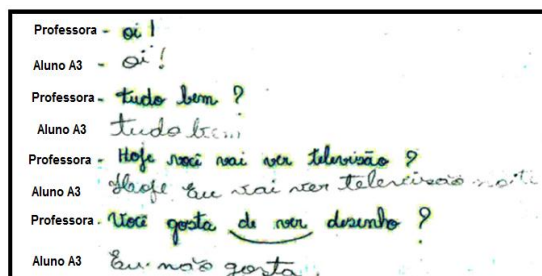 Professora - oi!
Aluno A3 - oi!
Professora - tudo bem?
Aluno A3 tudo bem
Professora - Hoje você vai ver televisão?
Aluno A3 Hoofe Eu vai ver televisão noiti
Professora - Você gosta de ver desenho?
Aluno A3 Eu não gosta.